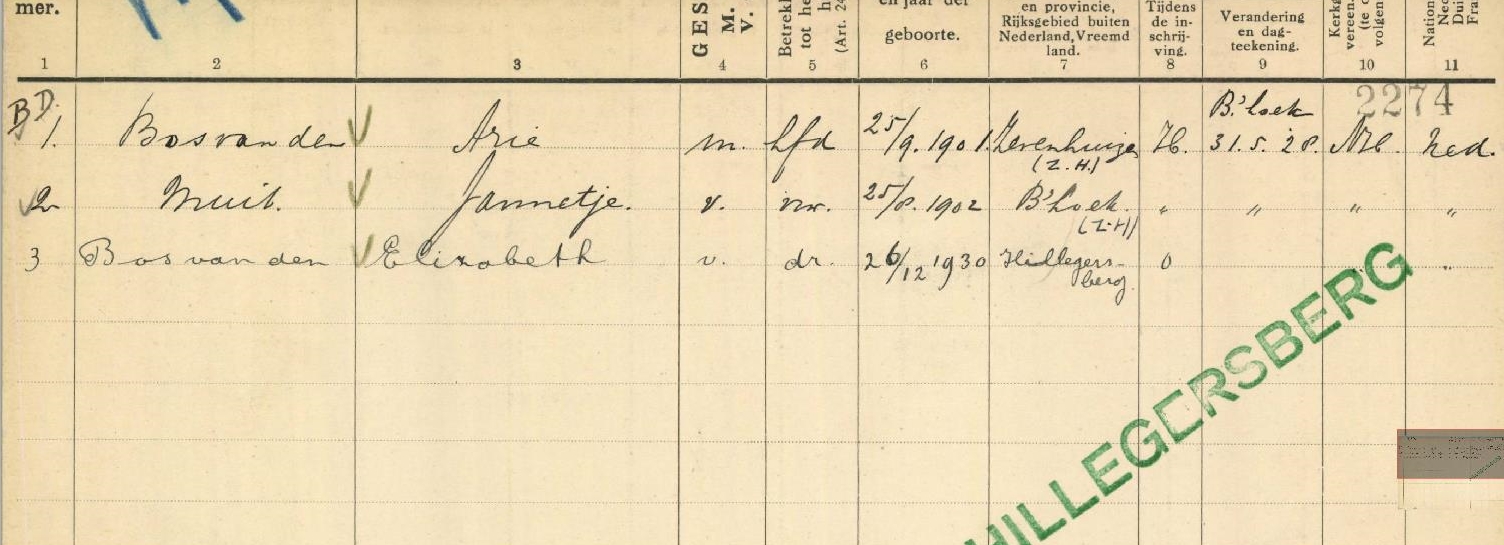 mer.
GES
M.
V.
Betrekk
tot he
h
(Art. 24
en jaar der
geboorte.
en provincie,
Rijksgebied buiten
Nederland, Vreemd
land.
Tijdens
de in-
schrij-
ving.
Verandering
en dag-
teekening.
Kerkg
vereen.
(te
volgen
Nation
Ned
Dui
Fra
1 2 3 4 5 6 7 8 9 10 11
2274
B.D.
B'hoek
1. Bos van den Arie m. hfd 25/9.1901. Zevenhuizen H. 31.5.28. NH. Ned.
(Z.H.)
2 Muit. Jannetje. v. vrw. 25/8.1902 B'hoek. " " " "
(Z.H)
3 Bos van den Elizabeth v. dr. 26/12 1930 Hillegers- 0 " "
berg.
HILLEGERSBERG